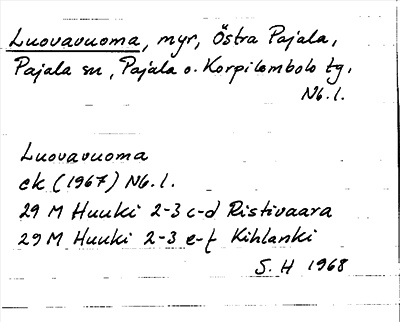 Luovavuoma, myr, Östra Pajala,
Pajala sn, Pajala o. Korpilombolo tg,
Nb.l.
Luovavuoma
ek (1967) Nb.l.
29 M Huuki 2-3 c-d Ristivaara
29 M Huuki 2-3 e-f Kihlanki
S. H 1968